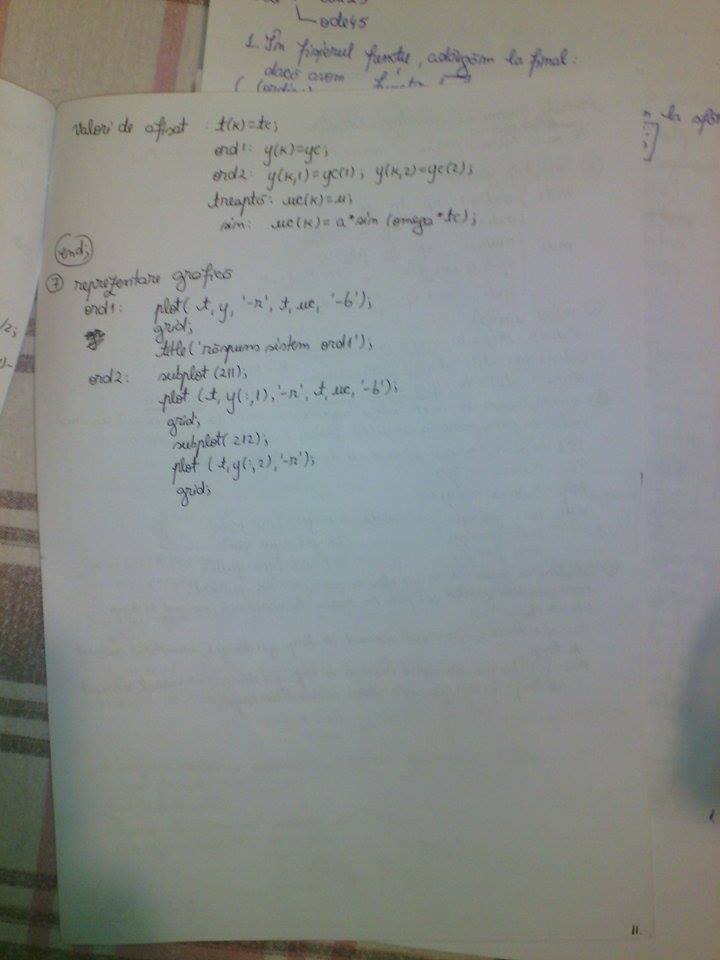 ode45
1. În fișierul funcție, adăugăm la final:
dacă avem
la
Valori de afișat : t(k)=tc;
ord1: y(k)=yc;
ord2: y(k,1)=yc(1); y(k,2)=yc(2);
treaptă: uc(k)=u;
sin: uc(k)=a*sin(omega*tc);
end;
7 reprezentare grafică
ord1: plot( t, y, '-r', t, uc, '-b');
grid;
title('răspuns sistem ord1');
ord2: subplot(211);
plot (t, y(:,1),'-r', t, uc, '-b');
grid;
subplot(212);
plot (t, y(:,2),'-r');
grid;
11.